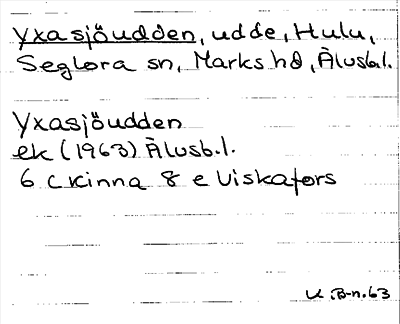 Yxasjöudden, udde, Hulu,
Seglora sn, Marks hd, Älvsb.l.
Yxasjöudden
ek (1963) Älvsb.l.
6 C Kinna 8 e Viskafors
B-n.63